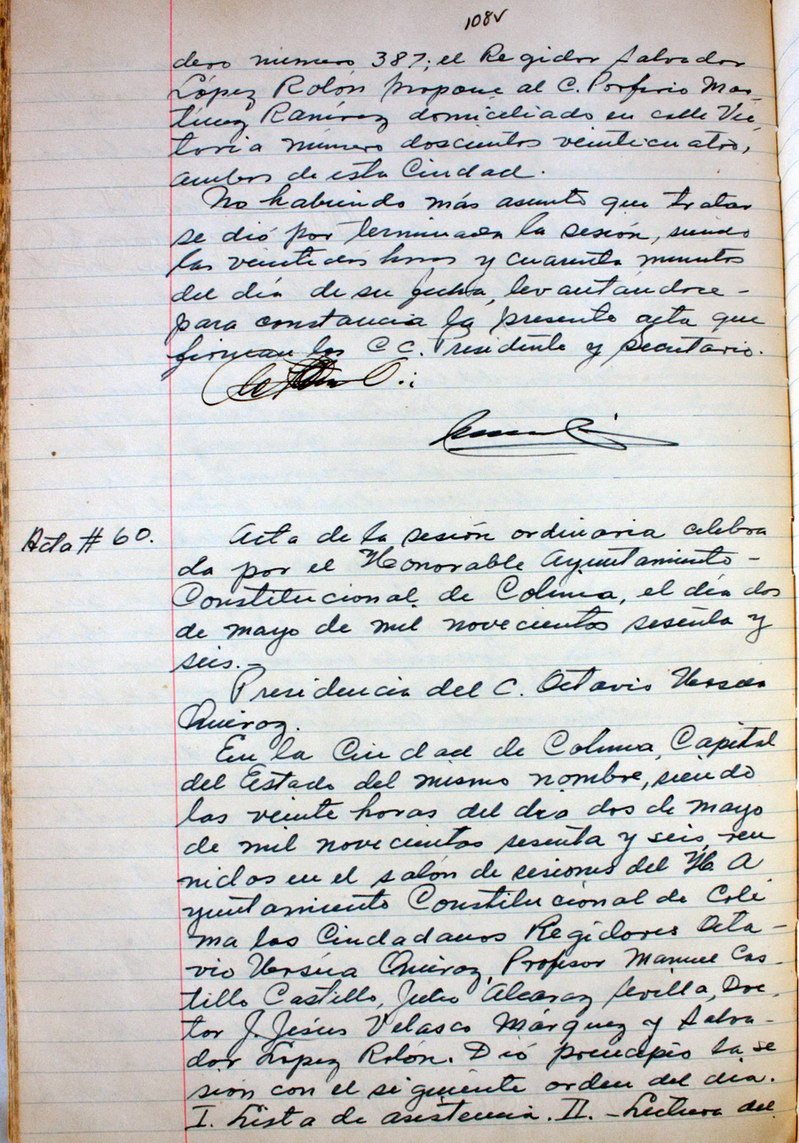 108v
dero número 387; el Regidor Salvador
López Rolón propone al C. Porfirio Mar-
tínez Ramírez domiciliado en calle Vic-
toria número doscientos veinticuatro,
ambos de esta Ciudad.
No habiendo más asunto que tratar
se dió por terminada la sesión, siendo
las veintidos horas y cuarenta minutos
del día de su fecha, levantándoce-
para constancia la presente acta que
firman los C C. Presidente y Secretario.
Acta # 60.
Acta de la sesión ordinaria celebra
da por el Honorable Ayuntamiento-
Constitucional de Colima, el día dos
de mayo de mil novecientos sesenta y
seis.-
Presidencia del C. Octavio
Quiroz.
En la Ciudad de Colima, Capital
del Estado del mismo nombre, siendo
las veinte horas del dia dos de mayo
de mil novecientos sesenta y seis, reu
nidos en el salón de sesiones del H. A
yuntamiento Constitucional de Coli
ma los Ciudadanos Regidores Octa-
vio Quiroz, Profesor Manuel Cas-
tillo Castillo, Julio Alcaraz Sevilla, Doc-
tor J. Jesús Velasco Márquez y Salva-
dor López Rolón. Dió principio la se
sión con el siguiente orden del día.
I. Lista de asistencia. II. - Lectura del